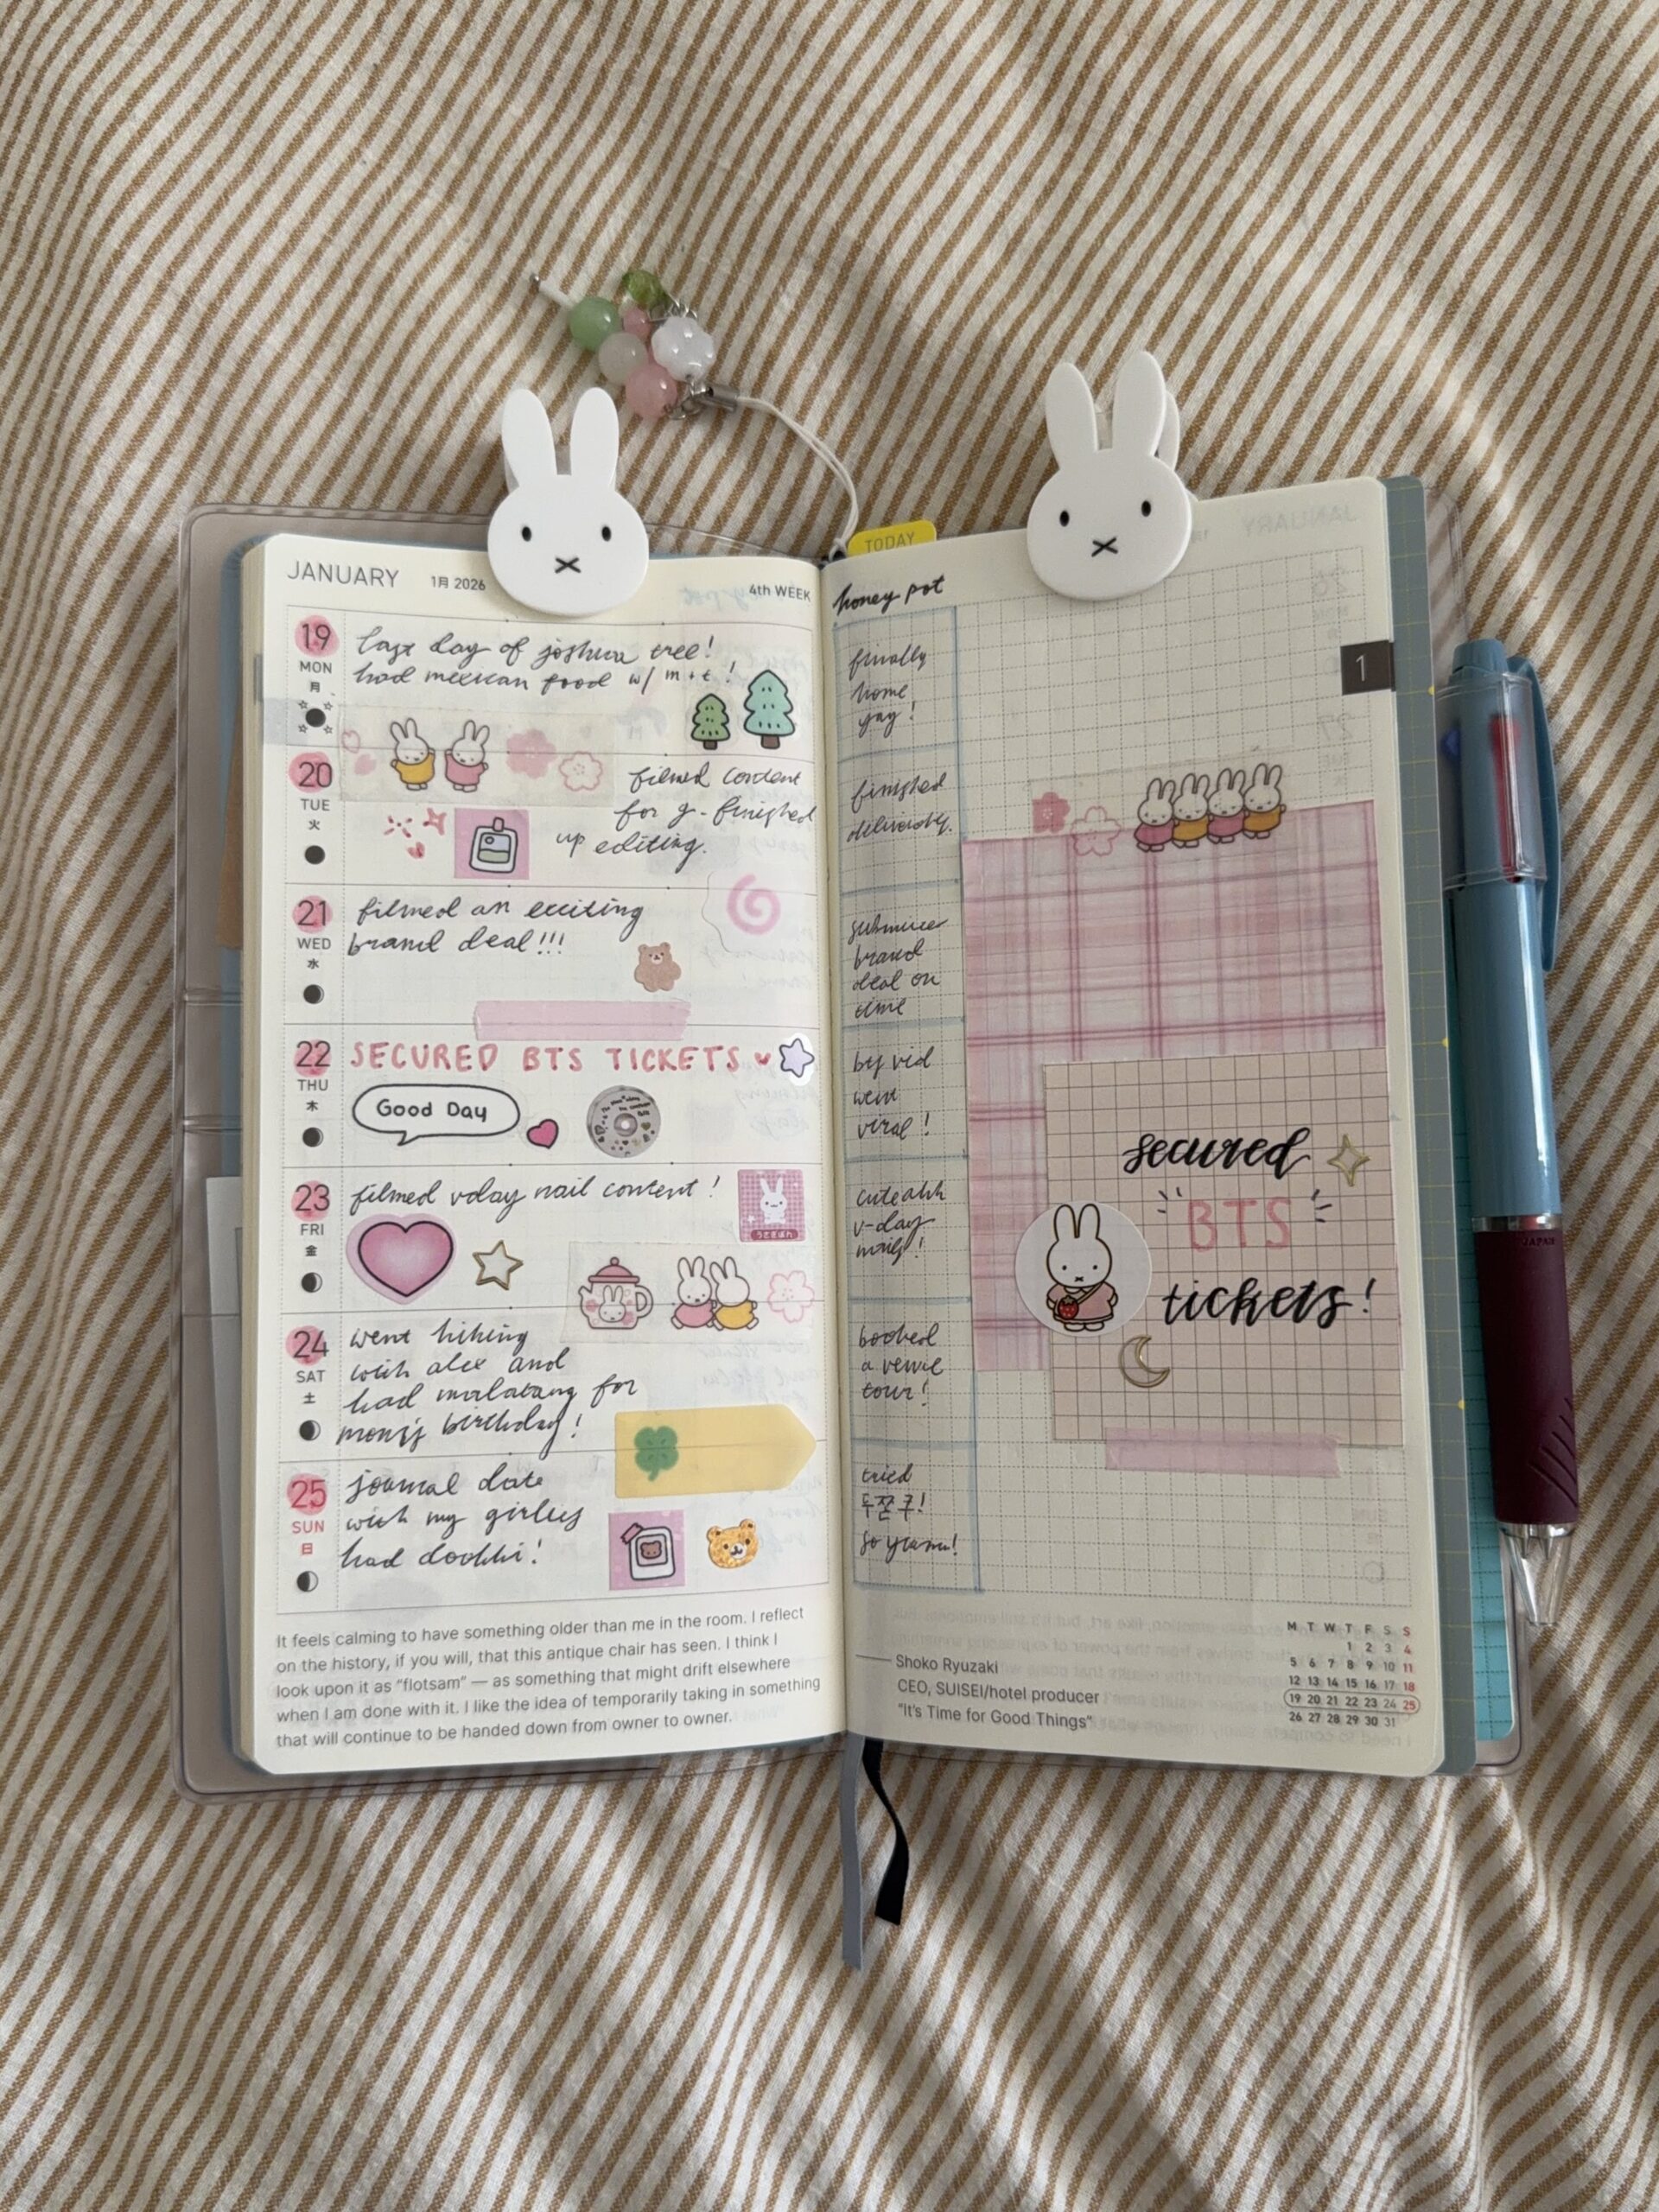 JANUARY 1月 2026 4th WEEK
19
MON
月
last day of joshua tree!
had mexican food w/ m + t !
20
TUE
火
filmed content
for g - finished
up editing.
21
WED
水
filmed an exciting
brand deal!!!
22
THU
木
SECURED BTS TICKETS
Good Day
23
FRI
金
filmed vday nail content!
うさぎぽん
24
SAT
土
went hiking
with alex and
had malatang for
mom's birthday!
25
SUN
日
journal date
with my girlies
had dookki!
It feels calming to have something older than me in the room. I reflect
on the history, if you will, that this antique chair has seen. I think I
look upon it as "flotsam" — as something that might drift elsewhere
when I am done with it. I like the idea of temporarily taking in something
that will continue to be handed down from owner to owner.
TODAY
honey pot
finally
home
yay!
finished
brand
deal on
time
vid
went
viral!
cute ahh
v-day
nails!
booked
a
tour!
tried
두쫀쿠!
so yum!
1
secured
BTS
tickets!
Shoko Ryuzaki
CEO, SUISEI/hotel producer
"It's Time for Good Things"
M T W T F S S
1 2 3 4
5 6 7 8 9 10 11
12 13 14 15 16 17 18
19 20 21 22 23 24 25
26 27 28 29 30 31
JAPAN